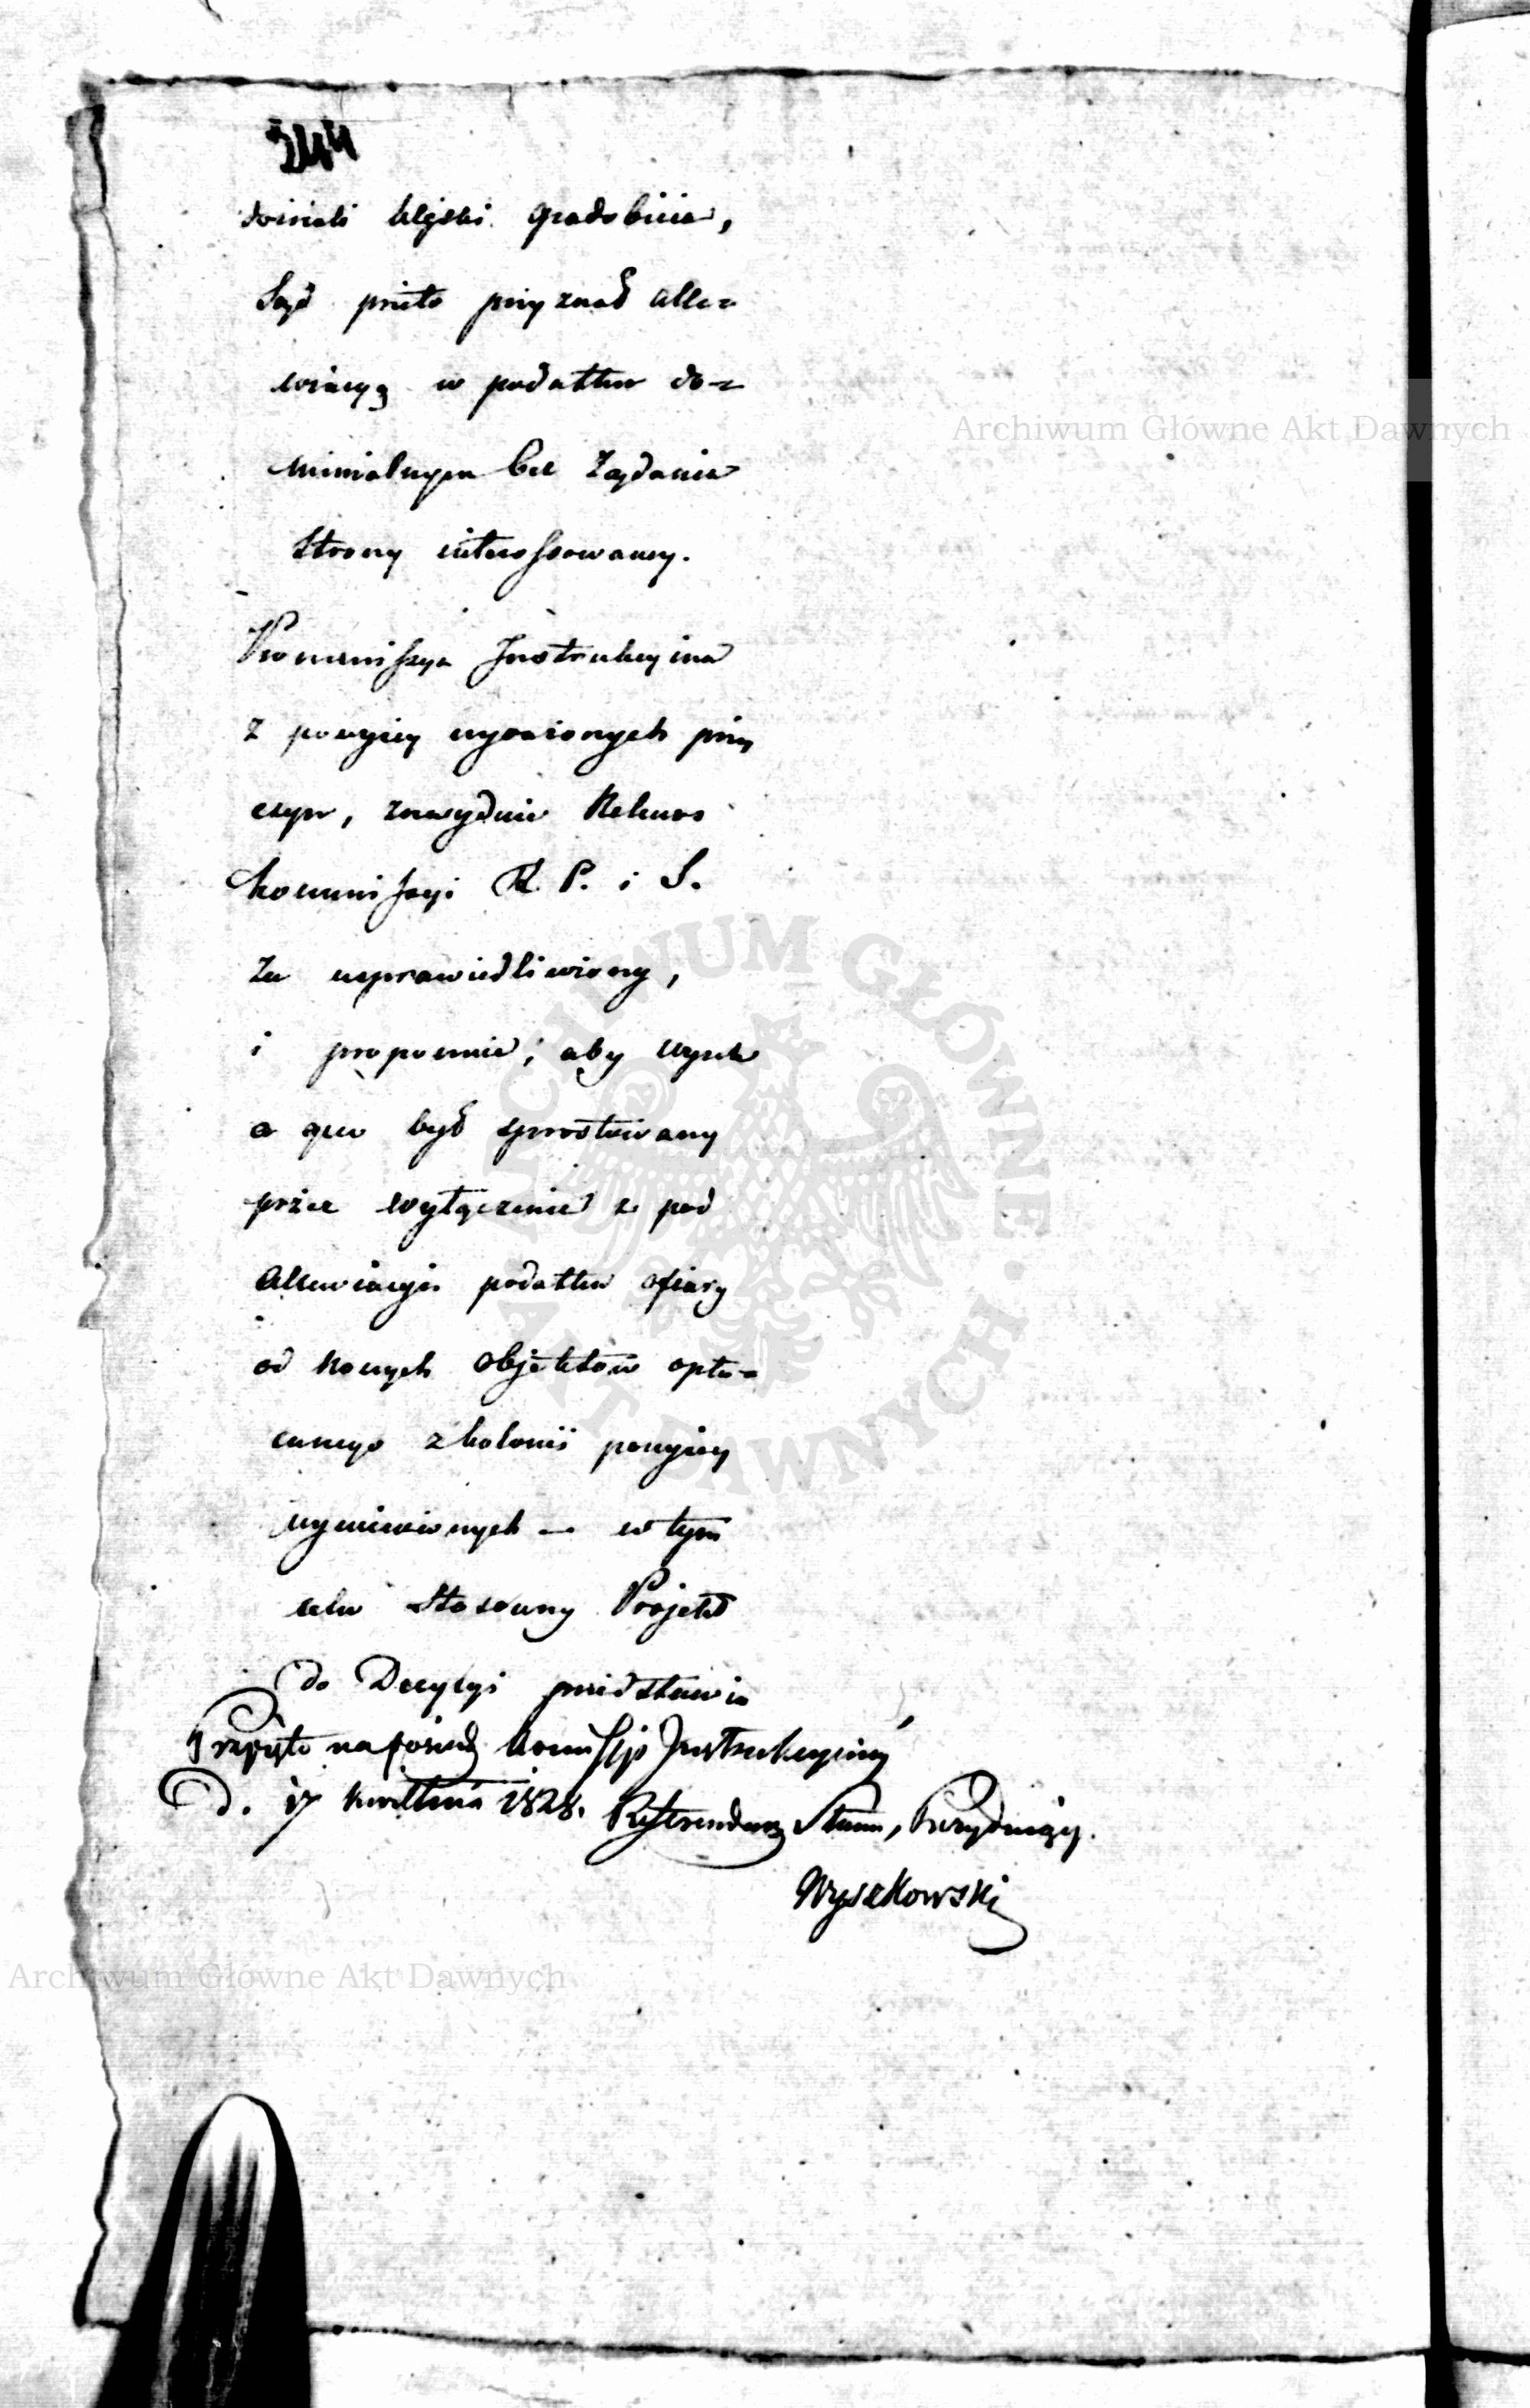 544
doznali klęski gradobicia,
Sąd przeto przyznał alle=
wiacyą w podatku do=
minialnym bez żądania
Strony interessowaney.
Kommissya Instrukcyina
z powyżey wyrażonych przy
czyn, znayduie Rekurs
Kommissyi R. P. i S.
za usprawiedliwiony,
i proponuie, aby wyrok
a quo był sprostowany
przez wyłączenie z pod
allewiacyi podatku ofiary
od nowych objektów opła=
canego z kolonii powyżey
wymienionych — w tym
celu stosowny Projekt
do Decyzyi przedstawia
Przyięto na posiedz. Kommissyi Instrukcyiney
D. 17 Kwietnia 1828. Referendarz Stanu, Prezyduiący.
Wyszkowski
Archiwum Główne Akt Dawnych
ARCHIWUM GŁÓWNE AKT DAWNYCH
Archiwum Główne Akt Dawnych